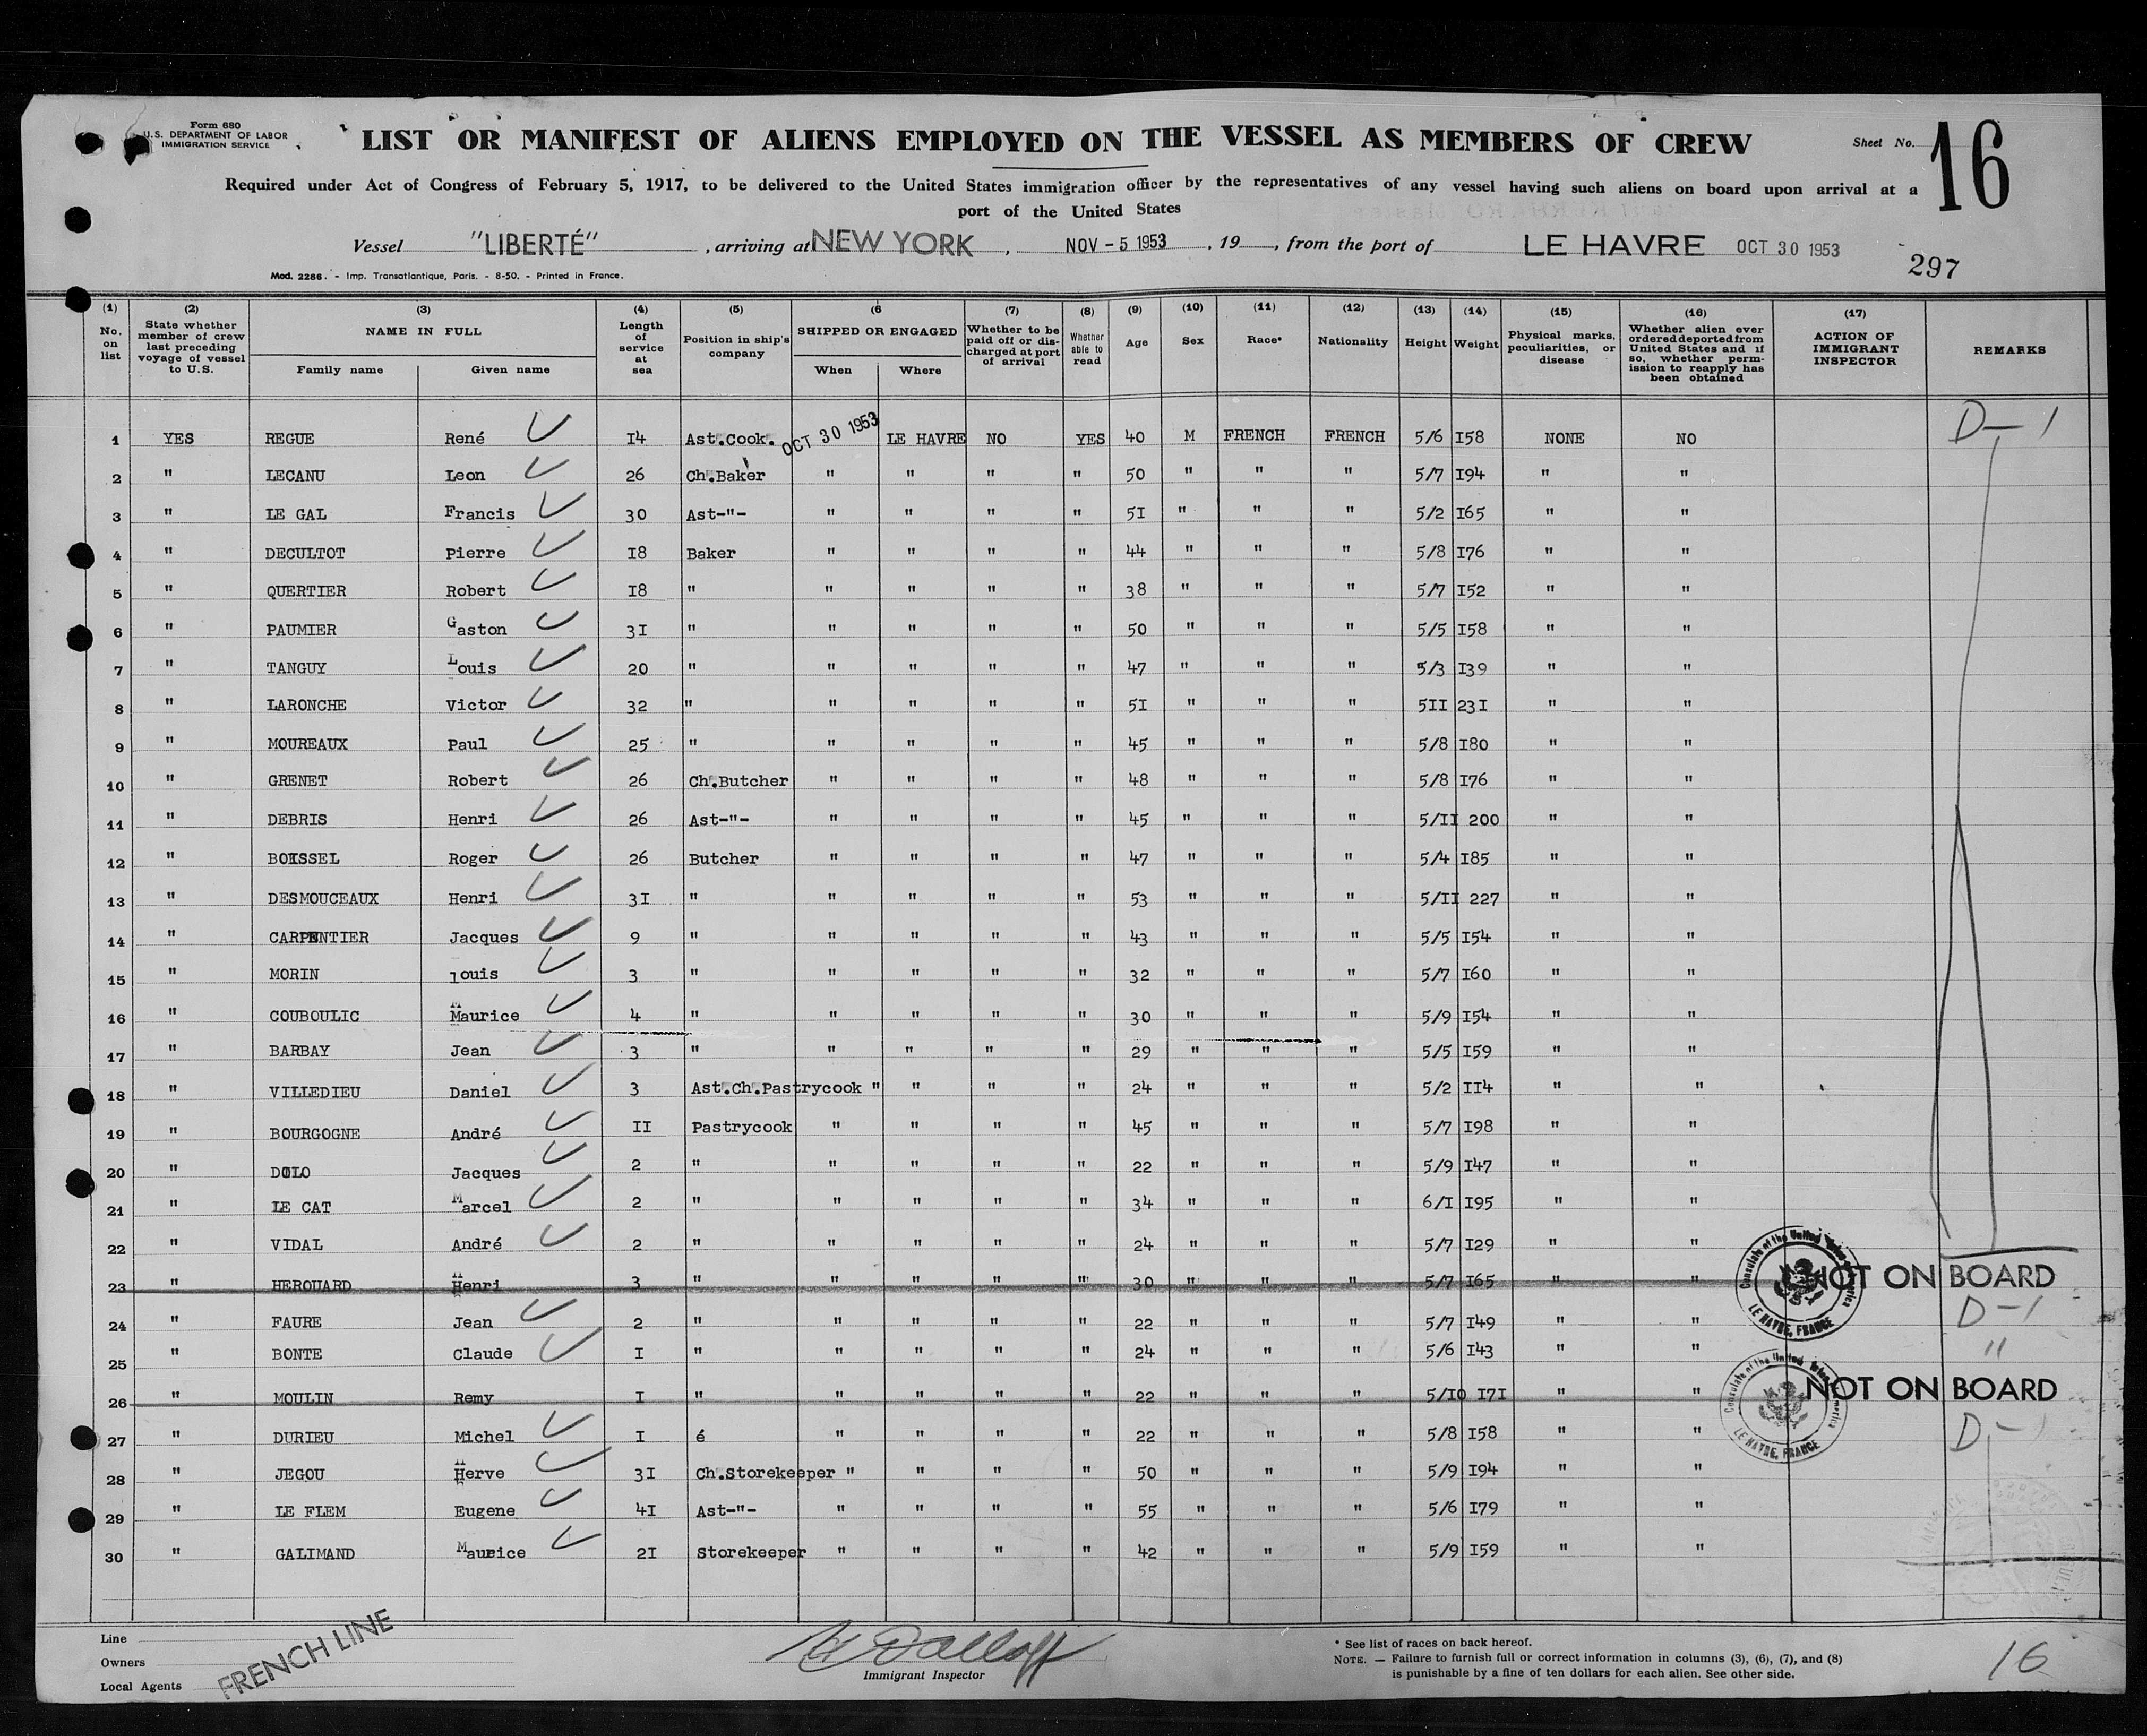 Form 680
U.S. DEPARTMENT OF LABOR
IMMIGRATION SERVICE
LIST OR MANIFEST OF ALIENS EMPLOYED ON THE VESSEL AS MEMBERS OF CREW
Sheet No. 16
Required under Act of Congress of February 5, 1917, to be delivered to the United States immigration officer by the representatives of any vessel having such aliens on board upon arrival at a
port of the United States
Vessel "LIBERTÉ", arriving at NEW YORK, NOV - 5 1953, 19, from the port of LE HAVRE OCT 30 1953
297
Mod. 2286. - Imp. Transatlantique, Paris. - 8-50. - Printed in France.
(1) No. on list
(2) State whether member of crew last preceding voyage of vessel to U.S.
(3) NAME IN FULL Family name Given name
(4) Length of service at sea
(5) Position in ship's company
(6 SHIPPED OR ENGAGED When Where
(7) Whether to be paid off or discharged at port of arrival
(8) Whether able to read
(9) Age
(10) Sex
(11) Race*
(12) Nationality
(13) Height
(14) Weight
(15) Physical marks, peculiarities, or disease
(16) Whether alien ever ordered deported from United States and if so, whether permission to reapply has been obtained
(17) ACTION OF IMMIGRANT INSPECTOR
REMARKS
1 YES REGUE René I4 Ast.Cook. OCT 30 1953 LE HAVRE NO YES 40 M FRENCH FRENCH 5/6 I58 NONE NO D-1
2 " LECANU Leon 26 Ch.Baker " " " " 50 " " " 5/7 I94 " "
3 " LE GAL Francis 30 Ast-"- " " " " 5I " " " 5/2 I65 " "
4 " DECULTOT Pierre I8 Baker " " " " 44 " " " 5/8 I76 " "
5 " QUERTIER Robert I8 " " " " " 38 " " " 5/7 I52 " "
6 " PAUMIER Gaston 3I " " " " " 50 " " " 5/5 I58 " "
7 " TANGUY Louis 20 " " " " " 47 " " " 5/3 I39 " "
8 " LARONCHE Victor 32 " " " " " 5I " " " 5II 23I " "
9 " MOUREAUX Paul 25 " " " " " 45 " " " 5/8 I80 " "
10 " GRENET Robert 26 Ch.Butcher " " " " 48 " " " 5/8 I76 " "
11 " DEBRIS Henri 26 Ast-"- " " " " 45 " " " 5/II 200 " "
12 " BOISSEL Roger 26 Butcher " " " " 47 " " " 5/4 I85 " "
13 " DESMOUCEAUX Henri 3I " " " " " 53 " " " 5/II 227 " "
14 " CARPENTIER Jacques 9 " " " " " 43 " " " 5/5 I54 " "
15 " MORIN louis 3 " " " " " 32 " " " 5/7 I60 " "
16 " COUBOULIC Maurice 4 " " " " " 30 " " " 5/9 I54 " "
17 " BARBAY Jean 3 " " " " " 29 " " " 5/5 I59 " "
18 " VILLEDIEU Daniel 3 Ast.Ch.Pastrycook " " " " 24 " " " 5/2 II4 " "
19 " BOURGOGNE André II Pastrycook " " " " 45 " " " 5/7 I98 " "
20 " Jacques 2 " " " " " 22 " " " 5/9 I47 " "
21 " LE CAT Marcel 2 " " " " " 34 " " " 6/I I95 " "
22 " VIDAL André 2 " " " " " 24 " " " 5/7 I29 " "
23 " HEROUARD Henri 3 " " " " " 30 " " " 5/7 I65 " " NOT ON BOARD
24 " FAURE Jean 2 " " " " " 22 " " " 5/7 I49 " " D-1
25 " BONTE Claude I " " " " " 24 " " " 5/6 I43 " " "
26 " MOULIN Remy I " " " " " 22 " " " 5/IO I7I " " NOT ON BOARD
27 " DURIEU Michel I é " " " " 22 " " " 5/8 I58 " " D-1
28 " JEGOU Herve 3I Ch.Storekeeper " " " " 50 " " " 5/9 I94 " "
29 " LE FLEM Eugene 4I Ast-"- " " " " 55 " " " 5/6 I79 " "
30 " GALIMAND Maurice 2I Storekeeper " " " " 42 " " " 5/9 I59 " "
Consulate of the United States of America
LE HAVRE, FRANCE
Consulate of the United States of America
LE HAVRE, FRANCE
Line
Owners
Local Agents
FRENCH LINE
Immigrant Inspector
* See list of races on back hereof.
NOTE. — Failure to furnish full or correct information in columns (3), (6), (7), and (8)
is punishable by a fine of ten dollars for each alien. See other side.
16